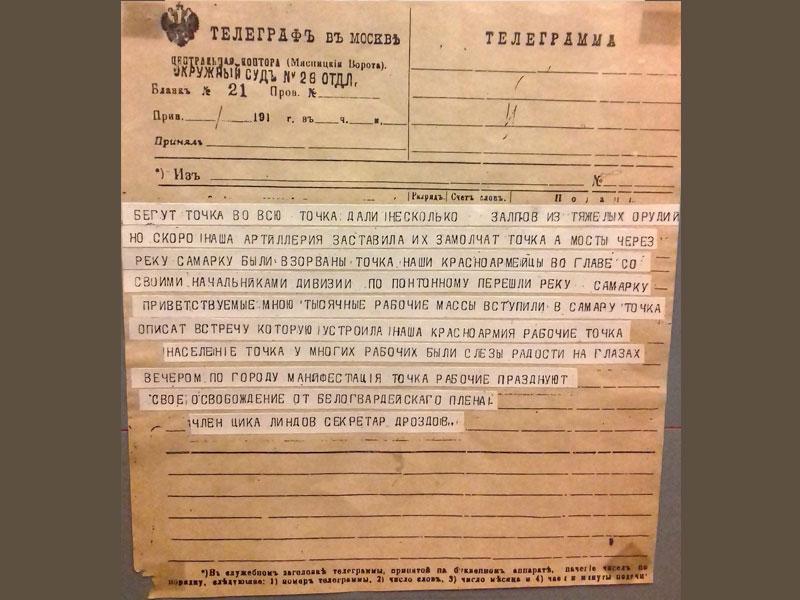 ТЕЛЕГРАФЪ ВЪ МОСКВѢ
ТЕЛЕГРАММА
ЦЕНТРАЛЬНАЯ КОНТОРА (Мясницкія Ворота).
ОКРУЖНЫЙ СУДЪ № 26 ОТДЛ,
Бланкъ № 21 Пров. №
Прин. / 191 г. въ ч. м.
Принялъ
*) Изъ №
Разрядъ. Счетъ словъ. Подана
БЕГУТ ТОЧКА ВО ВСЮ ТОЧКА ДАЛИ НЕСКОЛЬКО ЗАЛПОВ ИЗ ТЯЖЕЛЫХ ОРУДИЙ
НО СКОРО НАША АРТИЛЛЕРИЯ ЗАСТАВИЛА ИХ ЗАМОЛЧАТ ТОЧКА А МОСТЫ ЧЕРЕЗ
РЕКУ САМАРКУ БЫЛИ ВЗОРВАНЫ ТОЧКА НАШИ КРАСНОАРМЕЙЦЫ ВО ГЛАВЕ СО
СВОИМИ НАЧАЛЬНИКАМИ ДИВИЗИИ ПО ПОНТОННОМУ ПЕРЕШЛИ РЕКУ САМАРКУ
ПРИВЕТСТВУЕМЫЕ МНОЮ ТЫСЯЧНЫЕ РАБОЧИЕ МАССЫ ВСТУПИЛИ В САМАРУ ТОЧКА
ОПИСАТ ВСТРЕЧУ КОТОРУЮ УСТРОИЛА НАША КРАСНОАРМИЯ РАБОЧИЕ ТОЧКА
НАСЕЛЕНІЕ ТОЧКА У МНОГИХ РАБОЧИХ БЫЛИ СЛЕЗЫ РАДОСТИ НА ГЛАЗАХ
ВЕЧЕРОМ ПО ГОРОДУ МАНИФЕСТАЦІЯ ТОЧКА РАБОЧИЕ ПРАЗДНУЮТ
СВОЕ ОСВОБОЖДЕНИЕ ОТ БЕЛОГВАРДЕЙСКАГО ПЛЕНА
ЧЛЕН ЦИКА ЛИНДОВ СЕКРЕТАР ДРОЗДОВ,,
*) Въ служебномъ заголовкѣ телеграммы, принятой на буквенномъ аппаратѣ, значеніе чиселъ по
порядку, слѣдующее: 1) номеръ телеграммы, 2) число словъ, 3) число мѣсяца и 4) часы и минуты подачи.